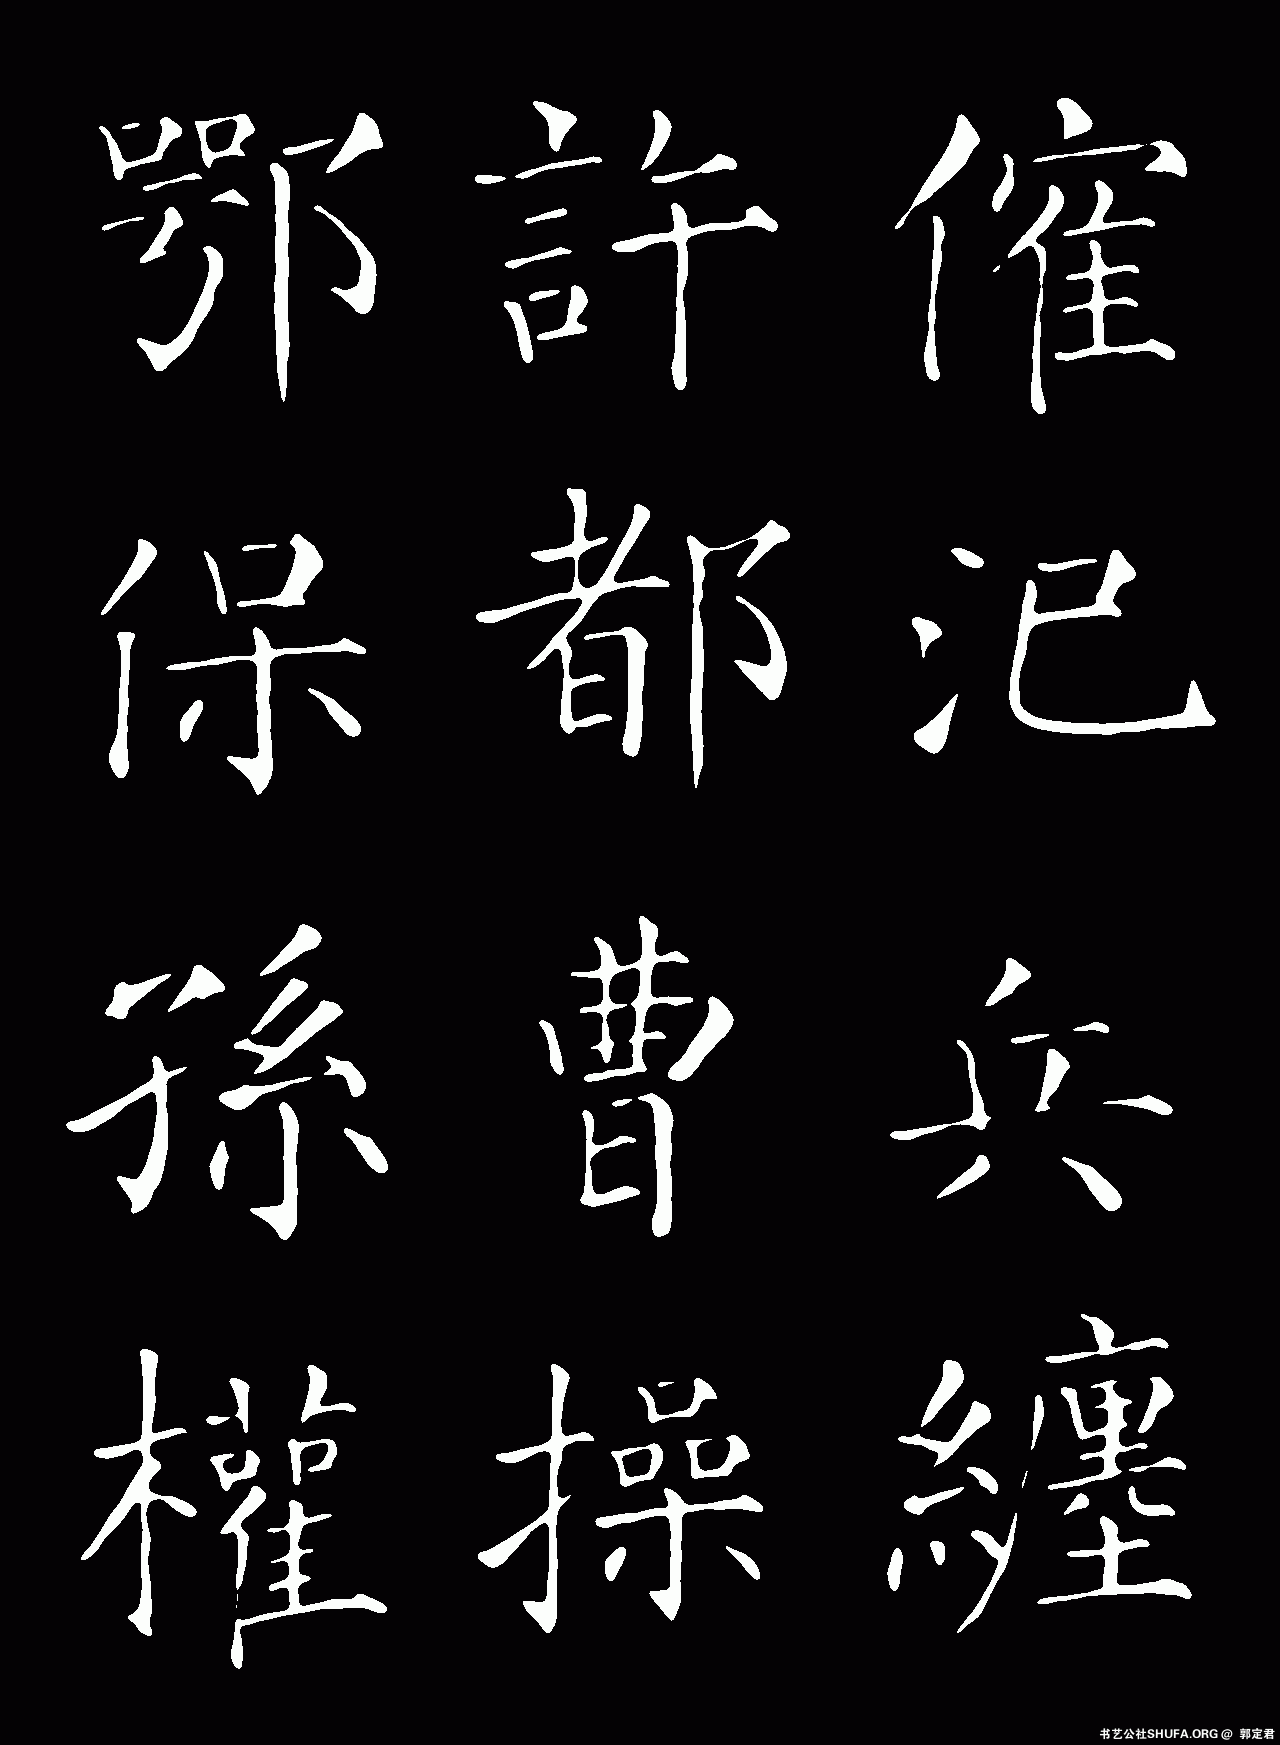 傕汜兵纏
許都曹操
鄂保孫權
书艺公社SHUFA.ORG @ 郭定君